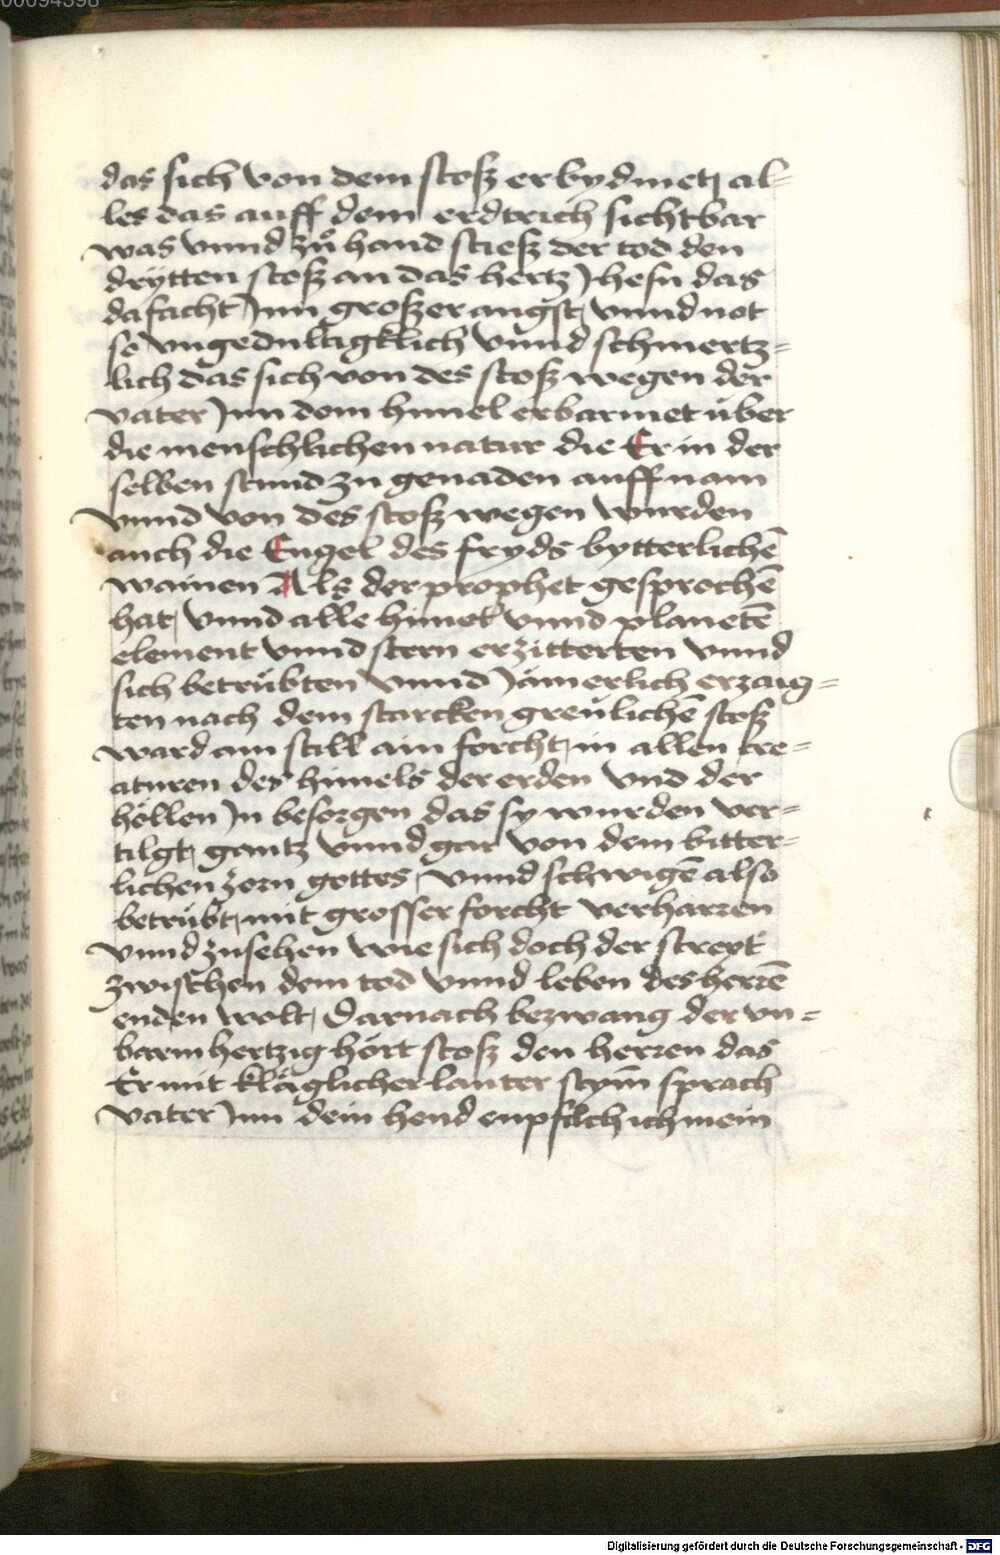 00094398
das sich von dem stosß erbydmet, al-
les das auff dem erdtrich sichtbar
was vnnd zů hand stiesß der tod den
drÿtten stosß an das hertz Jhesu das
da facht Jnn großer angst, vnnd not
so vngedultigklich vnnd schmertz=
lich das sich von des stosß wegen der
vater Jnn dem himel erbarmet über
die menschlichen natur die Er in der
selben stund zu genaden auff nam
vnnd von des stosß wegen wurden
auch die Engel des fryds bytterlichē
wainen Als der prophet gesprochē
hat, vnnd alle himel vnnd planetē
element vnnd stern erzitterten vnnd
sich betrübten vnnd Jämerlich erzaig=
ten nach dem starcken greülichē stosß
ward am still ain forcht, in allen cre=
aturen des himels der erden vnd der
höllen Jn besorgen das sy wurden ver=
tilgt, gantz vnnd gar von dem bitter=
lichen zorn gottes, vnnd schwigē also
betrübt, mit grosser forcht verharren
vnnd zusehen wie sich doch der streyt
zwischen dem tod vnnd leben des herrē
enden wolt, Darnach bezwang der vn=
barmhertzig hört stosß den herren das
Er mit kläglicher lauter stym̄ sprach
vater Jnn dein hend enpfilch ich mein
Digitalisierung gefördert durch die Deutsche Forschungsgemeinschaft - DFG